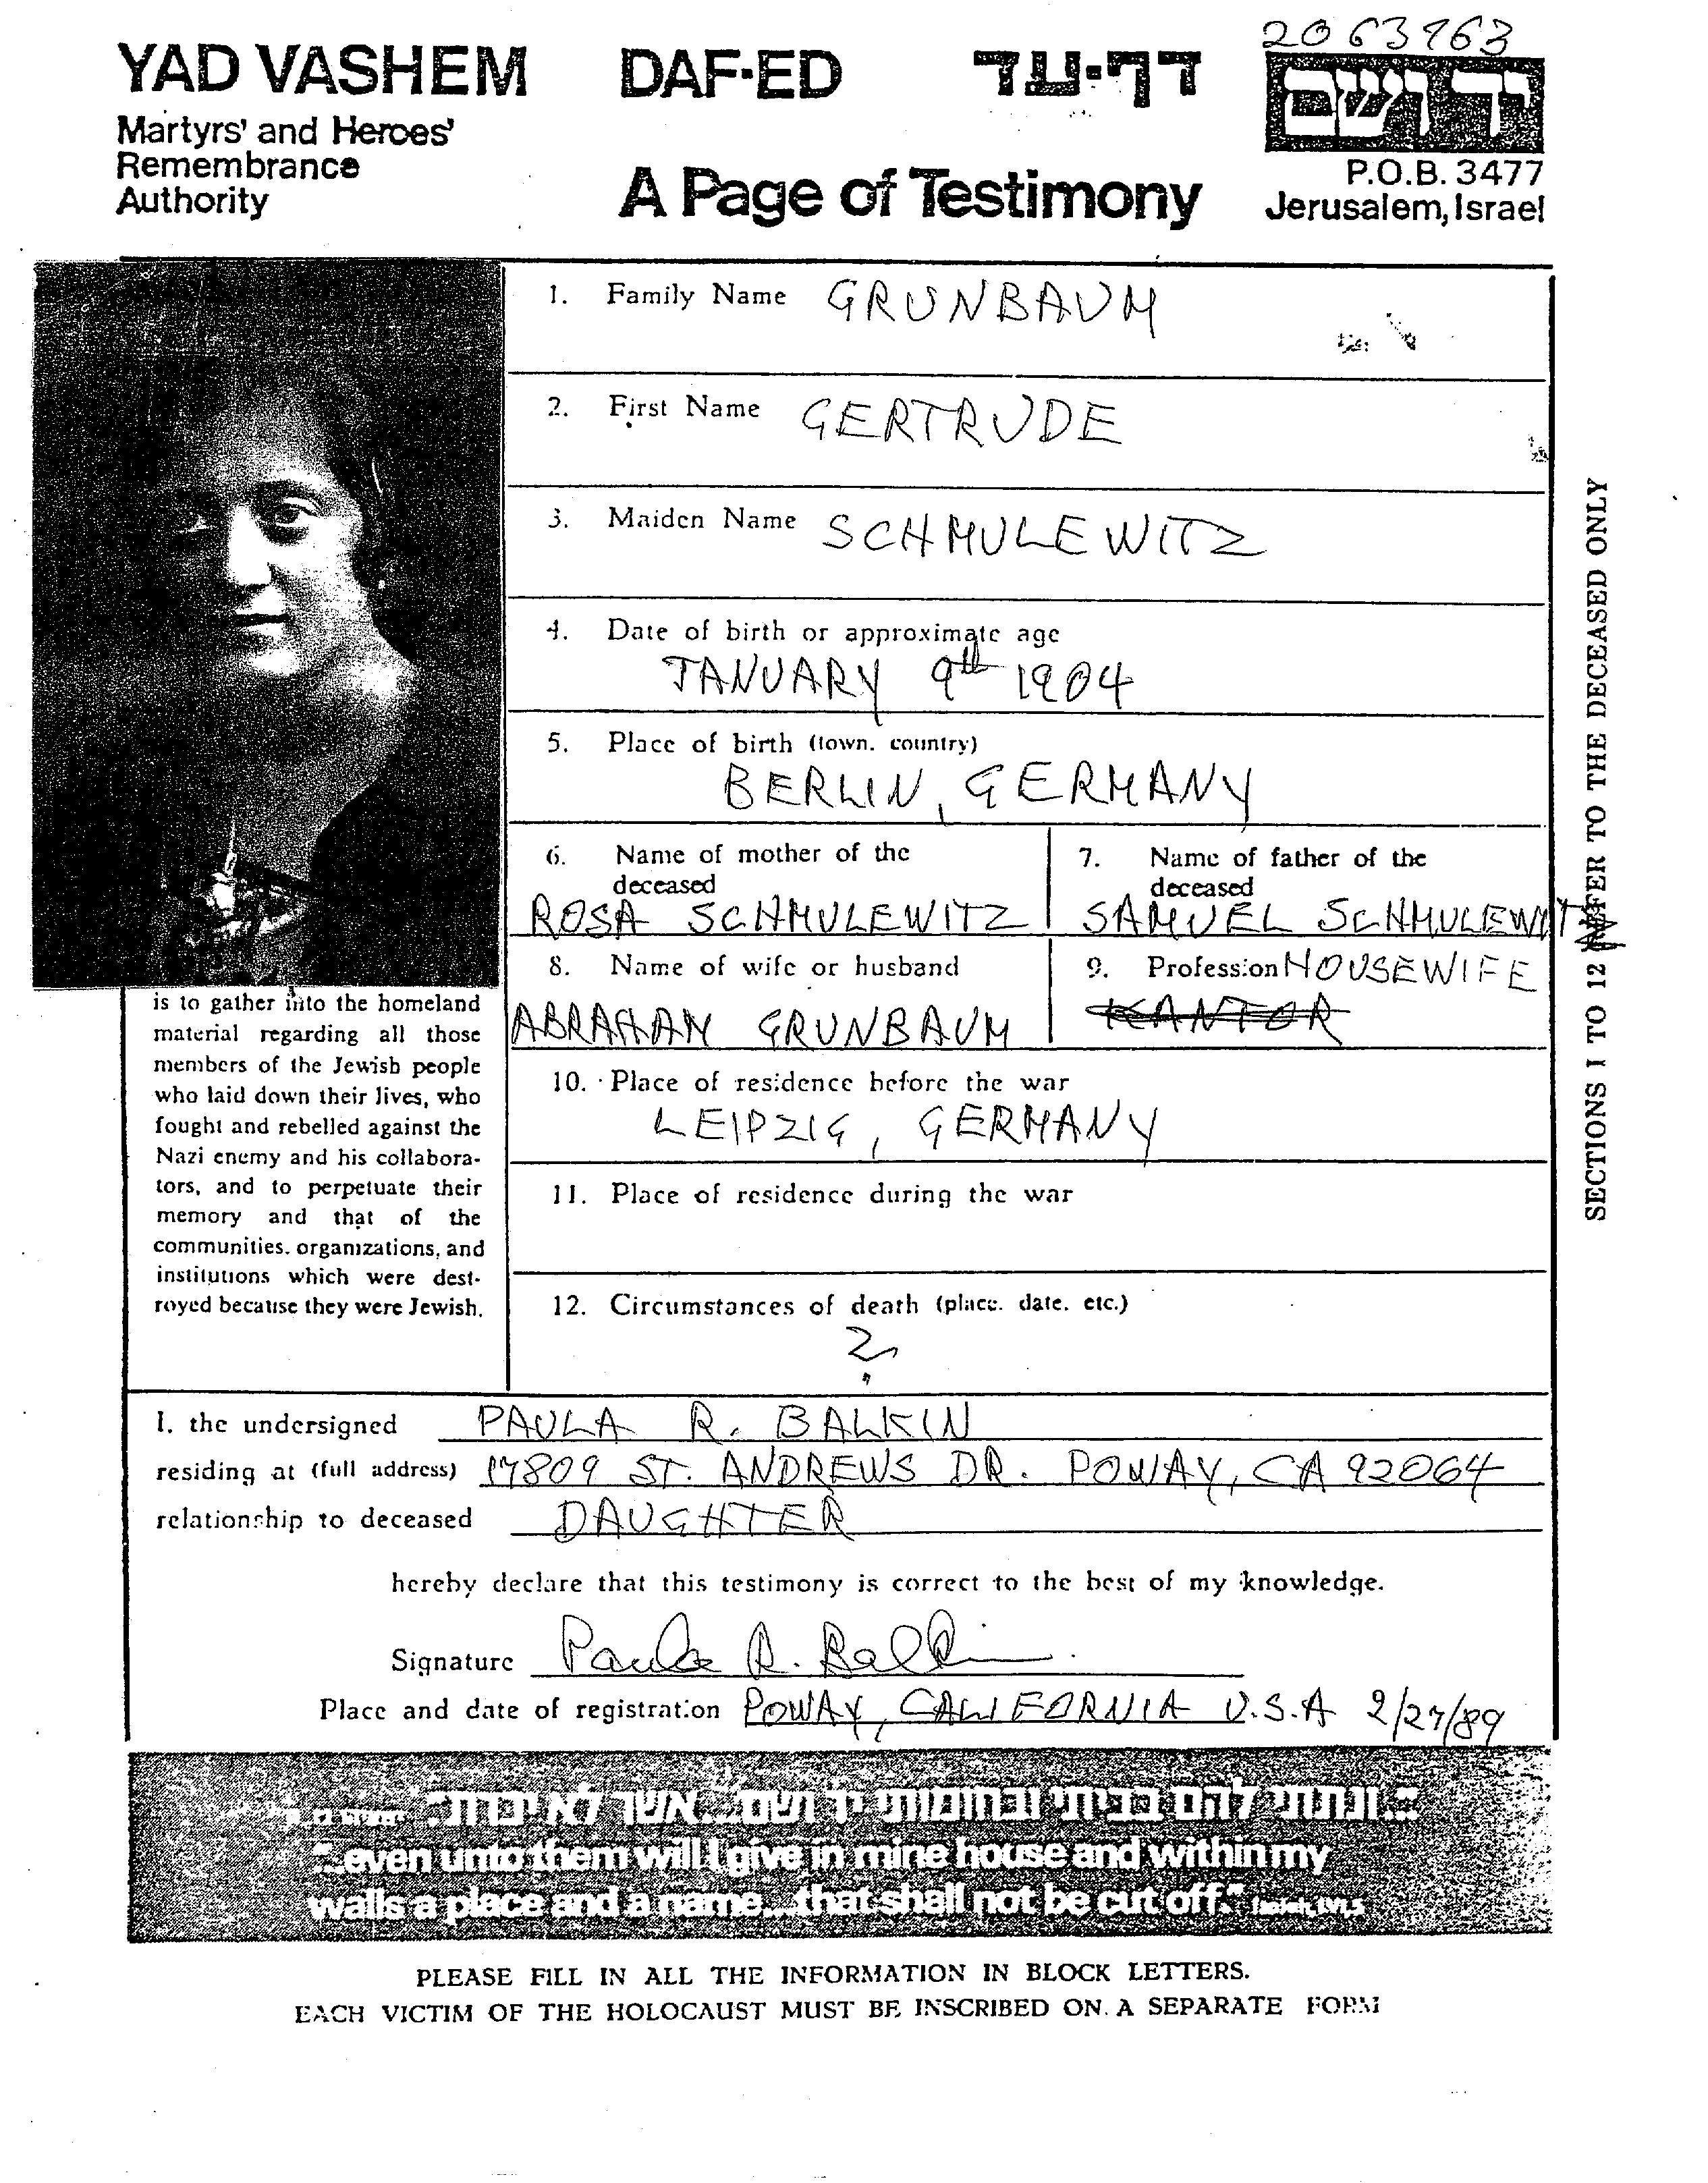 2063963
YAD VASHEM DAF-ED דף-עד
יד ושם
Martyrs' and Heroes'
Remembrance
Authority
A Page of Testimony
P.O.B. 3477
Jerusalem, Israel
1. Family Name GRUNBAUM
2. First Name GERTRUDE
3. Maiden Name SCHMULEWITZ
4. Date of birth or approximate age
JANUARY 9th 1904
5. Place of birth (town, country)
BERLIN, GERMANY
6. Name of mother of the
deceased
ROSA SCHMULEWITZ
7. Name of father of the
deceased
SAMUEL SCHMULEWITZ
8. Name of wife or husband
ABRAHAM GRUNBAUM
9. Profession HOUSEWIFE
KANTOR
10. Place of residence before the war
LEIPZIG, GERMANY
11. Place of residence during the war
12. Circumstances of death (place, date, etc.)
?
is to gather into the homeland
material regarding all those
members of the Jewish people
who laid down their lives, who
fought and rebelled against the
Nazi enemy and his collabora-
tors, and to perpetuate their
memory and that of the
communities, organizations, and
institutions which were dest-
royed because they were Jewish.
SECTIONS 1 TO 12 REFER TO THE DECEASED ONLY
I, the undersigned PAULA R. BALKIN
residing at (full address) 17809 ST. ANDREWS DR. POWAY, CA 92064
relationship to deceased DAUGHTER
hereby declare that this testimony is correct to the best of my knowledge.
Signature Paula R. Balkin
Place and date of registration POWAY, CALIFORNIA U.S.A 2/27/89
"...ונתתי להם בביתי ובחומותי יד ושם... אשר לא יכרת"
"...even unto them will I give in mine house and within my
walls a place and a name...that shall not be cut off." Isaiah, LVI, 5
PLEASE FILL IN ALL THE INFORMATION IN BLOCK LETTERS.
EACH VICTIM OF THE HOLOCAUST MUST BE INSCRIBED ON A SEPARATE FORM